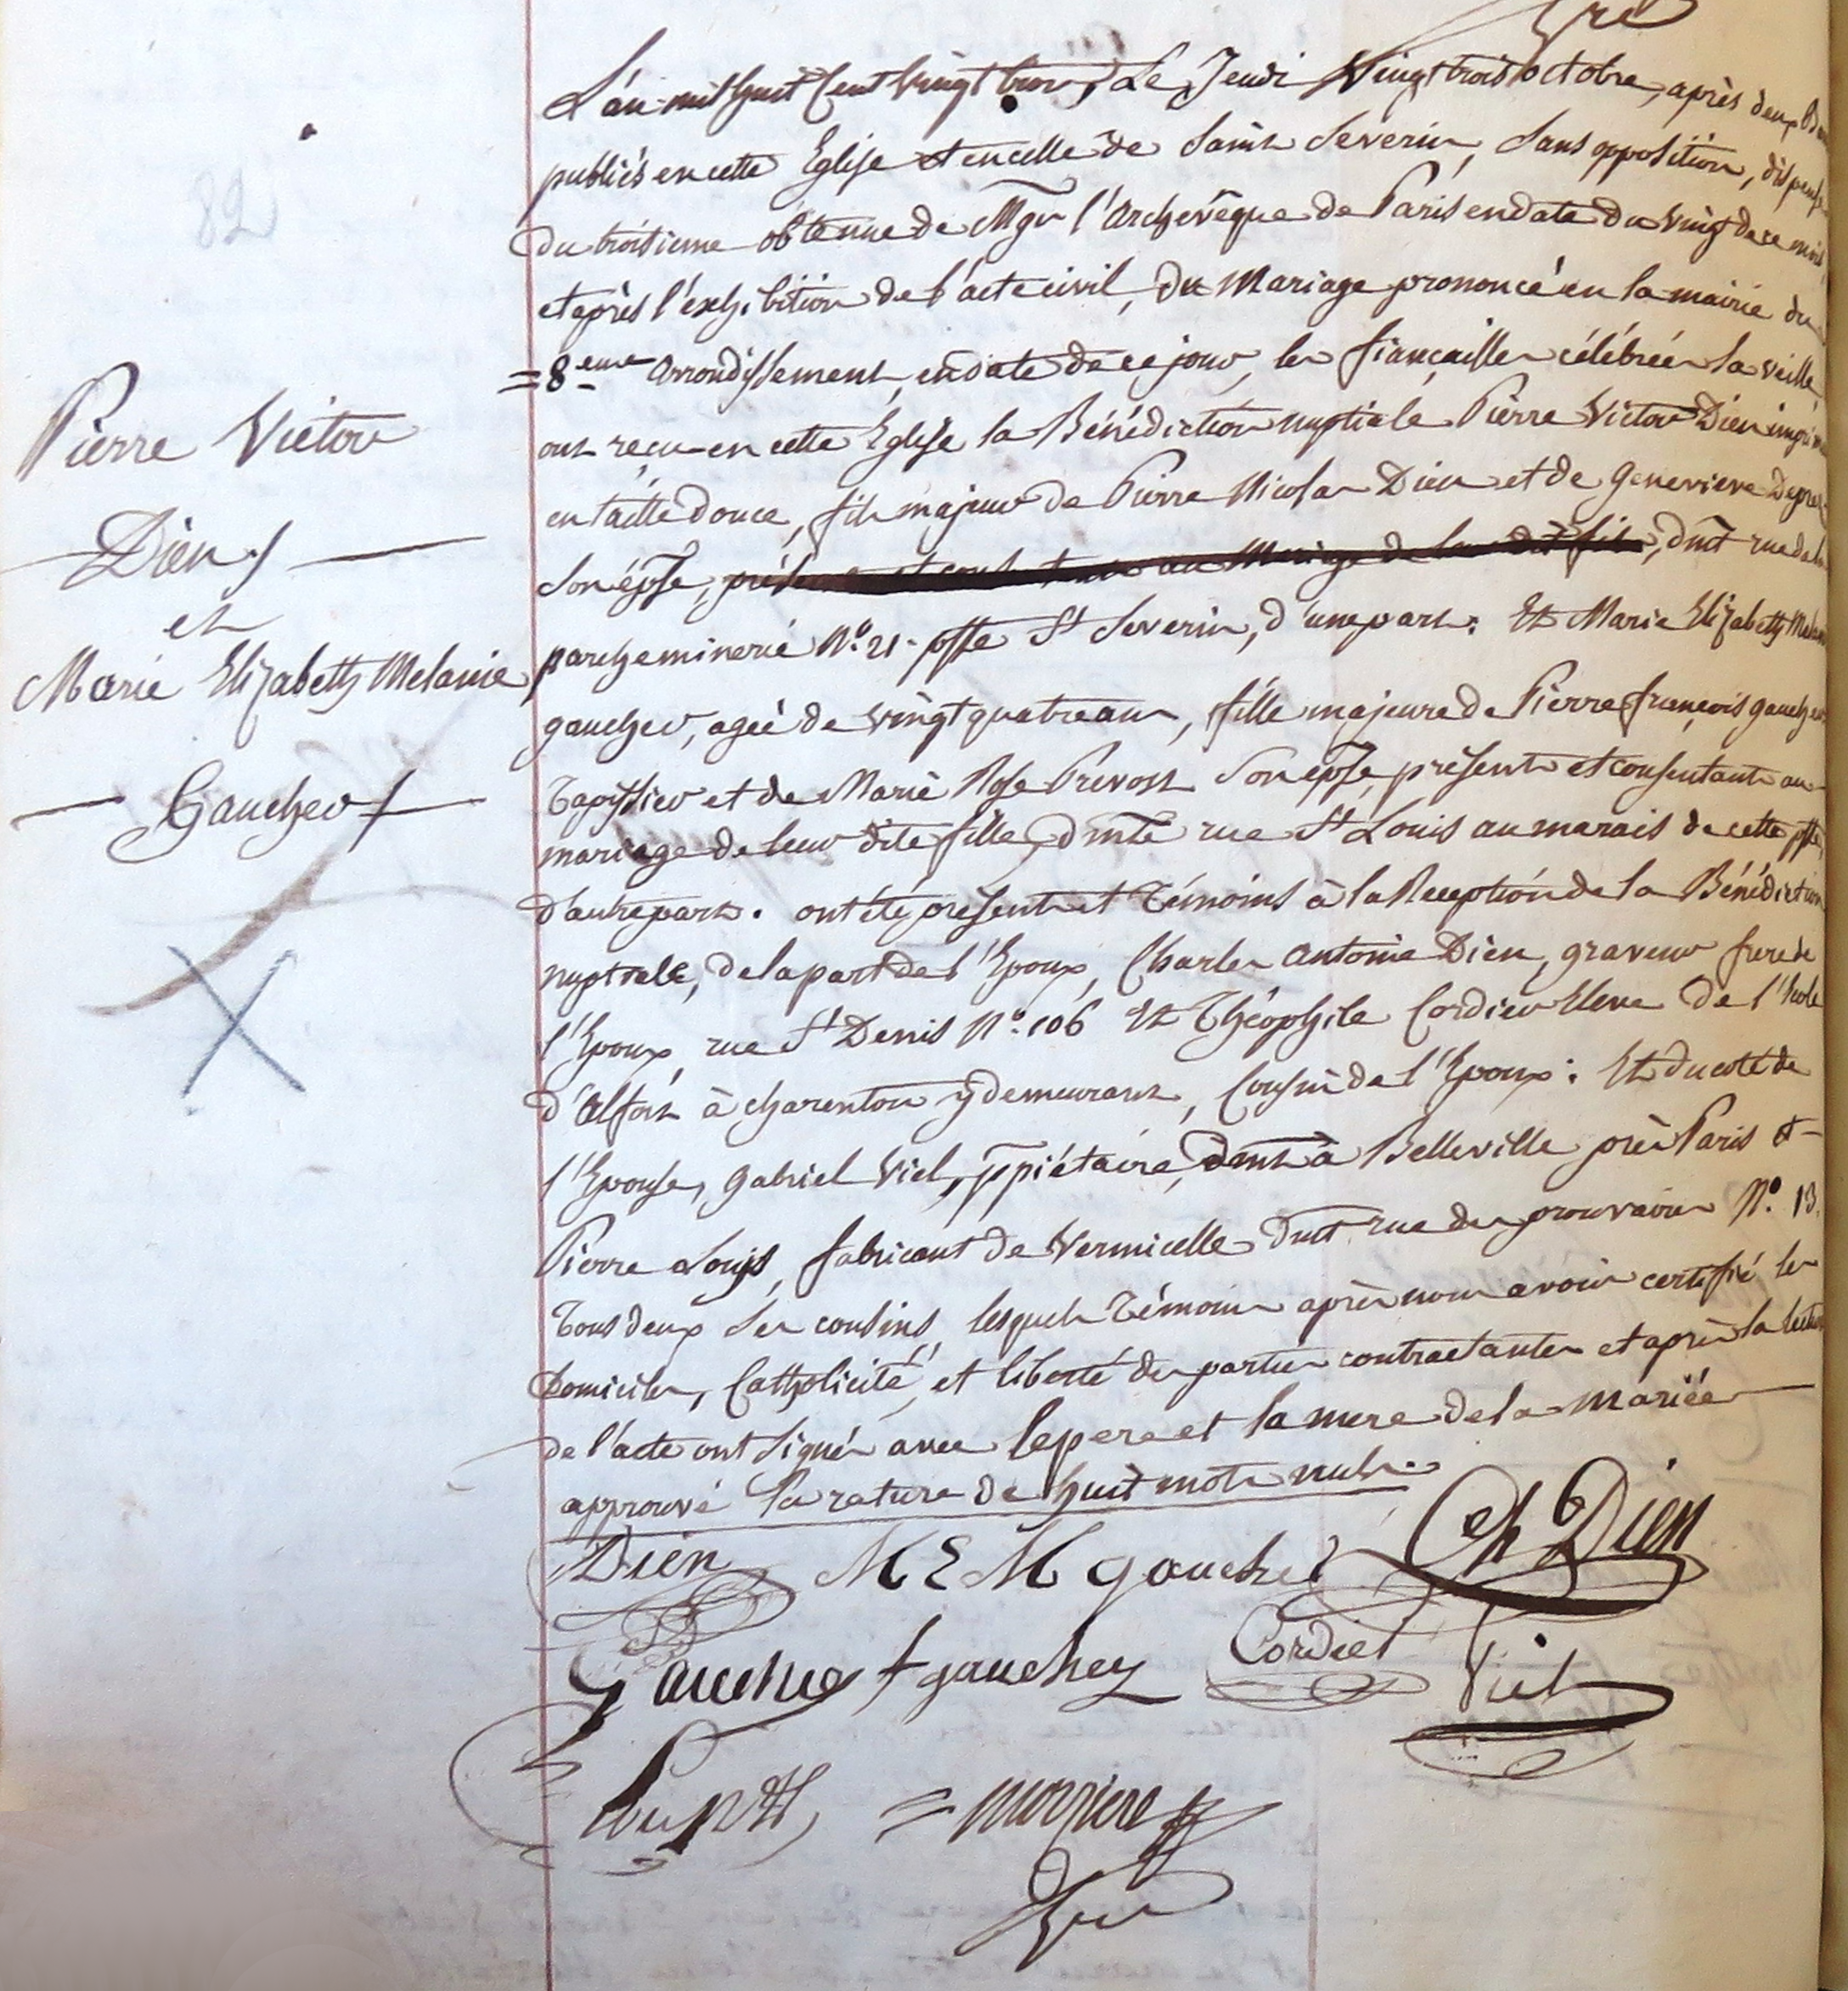 82
Pierre Victor
Dien
et
Marie Elizabeth Melanie
Gaucher
L'an mil huit Cent Vingt trois, Le Jeudi Vingt trois octobre, après deux
publiés en cette Eglise et en celle de Saint Severin, Sans opposition, dispense
du troisieme obtenue de Mgr l'archevêque de Paris en date du vingt de ce mois
et après l'exhibition de l'acte civil, du Mariage prononcé en la mairie du
=8eme arrondissement, en date de ce jour, les fiançailles célébrées la veille
ont reçu en cette Eglise la Bénédiction nuptiale Pierre Victor Dien
en taille douce, fils majeur de Pierre Nicolas Dien et de Genevieve
Son épse, présens et consentans au Mariage de leur dit fils, dmt rue de la
parcheminerie N°. 21. psse St Severin, d'une part. Et Marie Elizabeth
gaucher, agée de vingt quatre ans, fille majeure de Pierre françois gaucher
Tapissier et de Marie Rose Prevost Son épse, présents et consentants au
mariage de leur dite fille, dmte rue St Louis au marais de cette psse,
d'autre part. ont été présents et Témoins à la Réception de la Bénédiction
nuptiale, de la part de l'Epoux, Charles antoine Dien, graveur frere de
l'Epoux, rue St Denis N°. 106 Et Théophile Cordier Eleve de l'Ecole
d'alfort à charenton y demeurant, Cousin de l'Epoux. Et du coté de
l'Epouse, gabriel Viel, ppriétaire, dmt à Belleville près Paris et
Pierre Louis, fabricant de Vermicelle dmt rue des prouvaires N°. 13.
Tous deux Ses cousins, lesquels Témoins après nous avoir certifié les
Domiciles, Catholicité, et liberté des parties contractantes et après la lecture
de l'acte ont signé avec le pere et la mere de la Mariée
approuvé la rature de huit mots nuls.
Dien M E M gaucher Ch Dien
Gaucher f gaucher Cordier Viel
= morziere